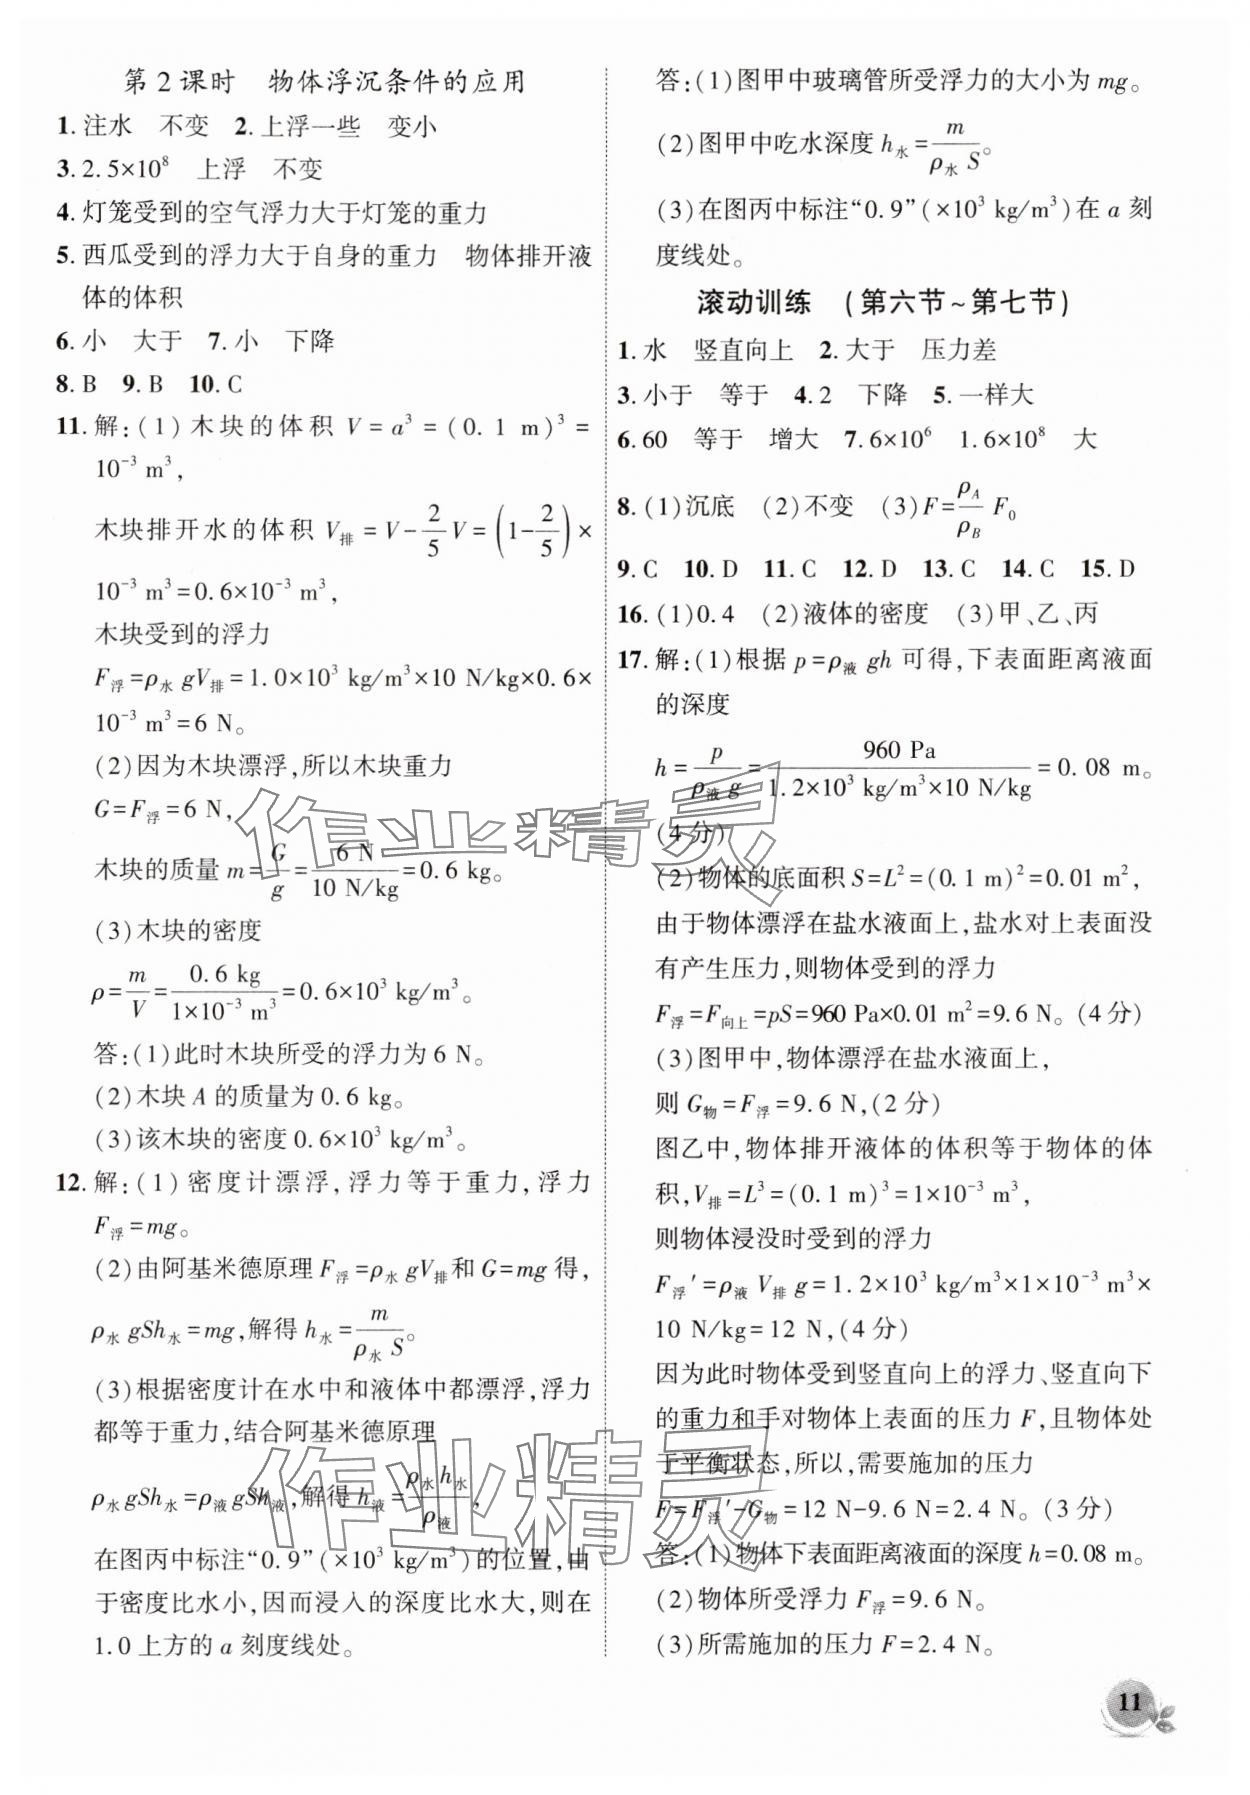 第2课时　物体浮沉条件的应用
1. 注水　不变　2. 上浮一些　变小
3. 2.5×10⁸　上浮　不变
4. 灯笼受到的空气浮力大于灯笼的重力
5. 西瓜受到的浮力大于自身的重力　物体排开液
体的体积
6. 小　大于　7. 小　下降
8. B　9. B　10. C
11. 解:(1)木块的体积 V=a³=(0.1 m)³=
10⁻³ m³,
木块排开水的体积 V排=V-2/5V=(1-2/5)×
10⁻³ m³=0.6×10⁻³ m³,
木块受到的浮力
F浮=ρ水 gV排=1.0×10³ kg/m³×10 N/kg×0.6×
10⁻³ m³=6 N。
(2)因为木块漂浮,所以木块重力
G=F浮=6 N,
木块的质量 m=G/g=6 N/10 N/kg=0.6 kg。
(3)木块的密度
ρ=m/V=0.6 kg/1×10⁻³ m³=0.6×10³ kg/m³。
答:(1)此时木块所受的浮力为 6 N。
(2)木块 A 的质量为 0.6 kg。
(3)该木块的密度 0.6×10³ kg/m³。
12. 解:(1)密度计漂浮,浮力等于重力,浮力
F浮=mg。
(2)由阿基米德原理 F浮=ρ水 gV排和 G=mg 得,
ρ水 gSh水=mg,解得 h水=m/ρ水 S。
(3)根据密度计在水中和液体中都漂浮,浮力
都等于重力,结合阿基米德原理
ρ水 gSh水=ρ液 gSh液,解得 h液=ρ水 h水/ρ液,
在图丙中标注“0.9”(×10³ kg/m³)的位置,由
于密度比水小,因而浸入的深度比水大,则在
1.0 上方的 a 刻度线处。
答:(1)图甲中玻璃管所受浮力的大小为 mg。
(2)图甲中吃水深度 h水=m/ρ水 S。
(3)在图丙中标注“0.9”(×10³ kg/m³)在 a 刻
度线处。
滚动训练　(第六节~第七节)
1. 水　竖直向上　2. 大于　压力差
3. 小于　等于　4. 2　下降　5. 一样大
6. 60　等于　增大　7. 6×10⁶　1.6×10⁸　大
8. (1)沉底　(2)不变　(3)F=ρA/ρB F₀
9. C　10. D　11. C　12. D　13. C　14. C　15. D
16. (1)0.4　(2)液体的密度　(3)甲、乙、丙
17. 解:(1)根据 p=ρ液 gh 可得,下表面距离液面
的深度
h=p/ρ液 g=960 Pa/1.2×10³ kg/m³×10 N/kg=0.08 m。
(4分)
(2)物体的底面积 S=L²=(0.1 m)²=0.01 m²,
由于物体漂浮在盐水液面上,盐水对上表面没
有产生压力,则物体受到的浮力
F浮=F向上=pS=960 Pa×0.01 m²=9.6 N。(4分)
(3)图甲中,物体漂浮在盐水液面上,
则 G物=F浮=9.6 N,(2分)
图乙中,物体排开液体的体积等于物体的体
积,V排=L³=(0.1 m)³=1×10⁻³ m³,
则物体浸没时受到的浮力
F浮′=ρ液 V排 g=1.2×10³ kg/m³×1×10⁻³ m³×
10 N/kg=12 N,(4分)
因为此时物体受到竖直向上的浮力、竖直向下
的重力和手对物体上表面的压力 F,且物体处
于平衡状态,所以,需要施加的压力
F=F浮′-G物=12 N-9.6 N=2.4 N。(3分)
答:(1)物体下表面距离液面的深度 h=0.08 m。
(2)物体所受浮力 F浮=9.6 N。
(3)所需施加的压力 F=2.4 N。
11
作业精灵
作业精灵